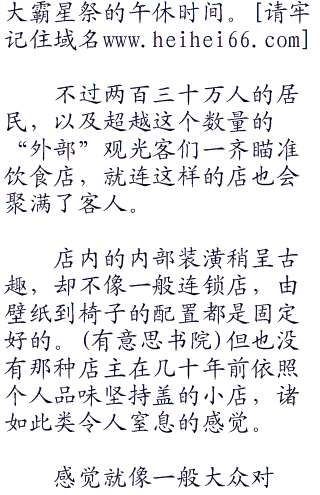 大霸星祭的午休时间。[请牢
记住域名www.heihei66.com]
不过两百三十万人的居
民，以及超越这个数量的
“外部”观光客们一齐瞄准
饮食店，就连这样的店也会
聚满了客人。
店内的内部装潢稍呈古
趣，却不像一般连锁店，由
壁纸到椅子的配置都是固定
好的。(有意思书院)但也没
有那种店主在几十年前依照
个人品味坚持盖的小店，诸
如此类令人窒息的感觉。
感觉就像一般大众对